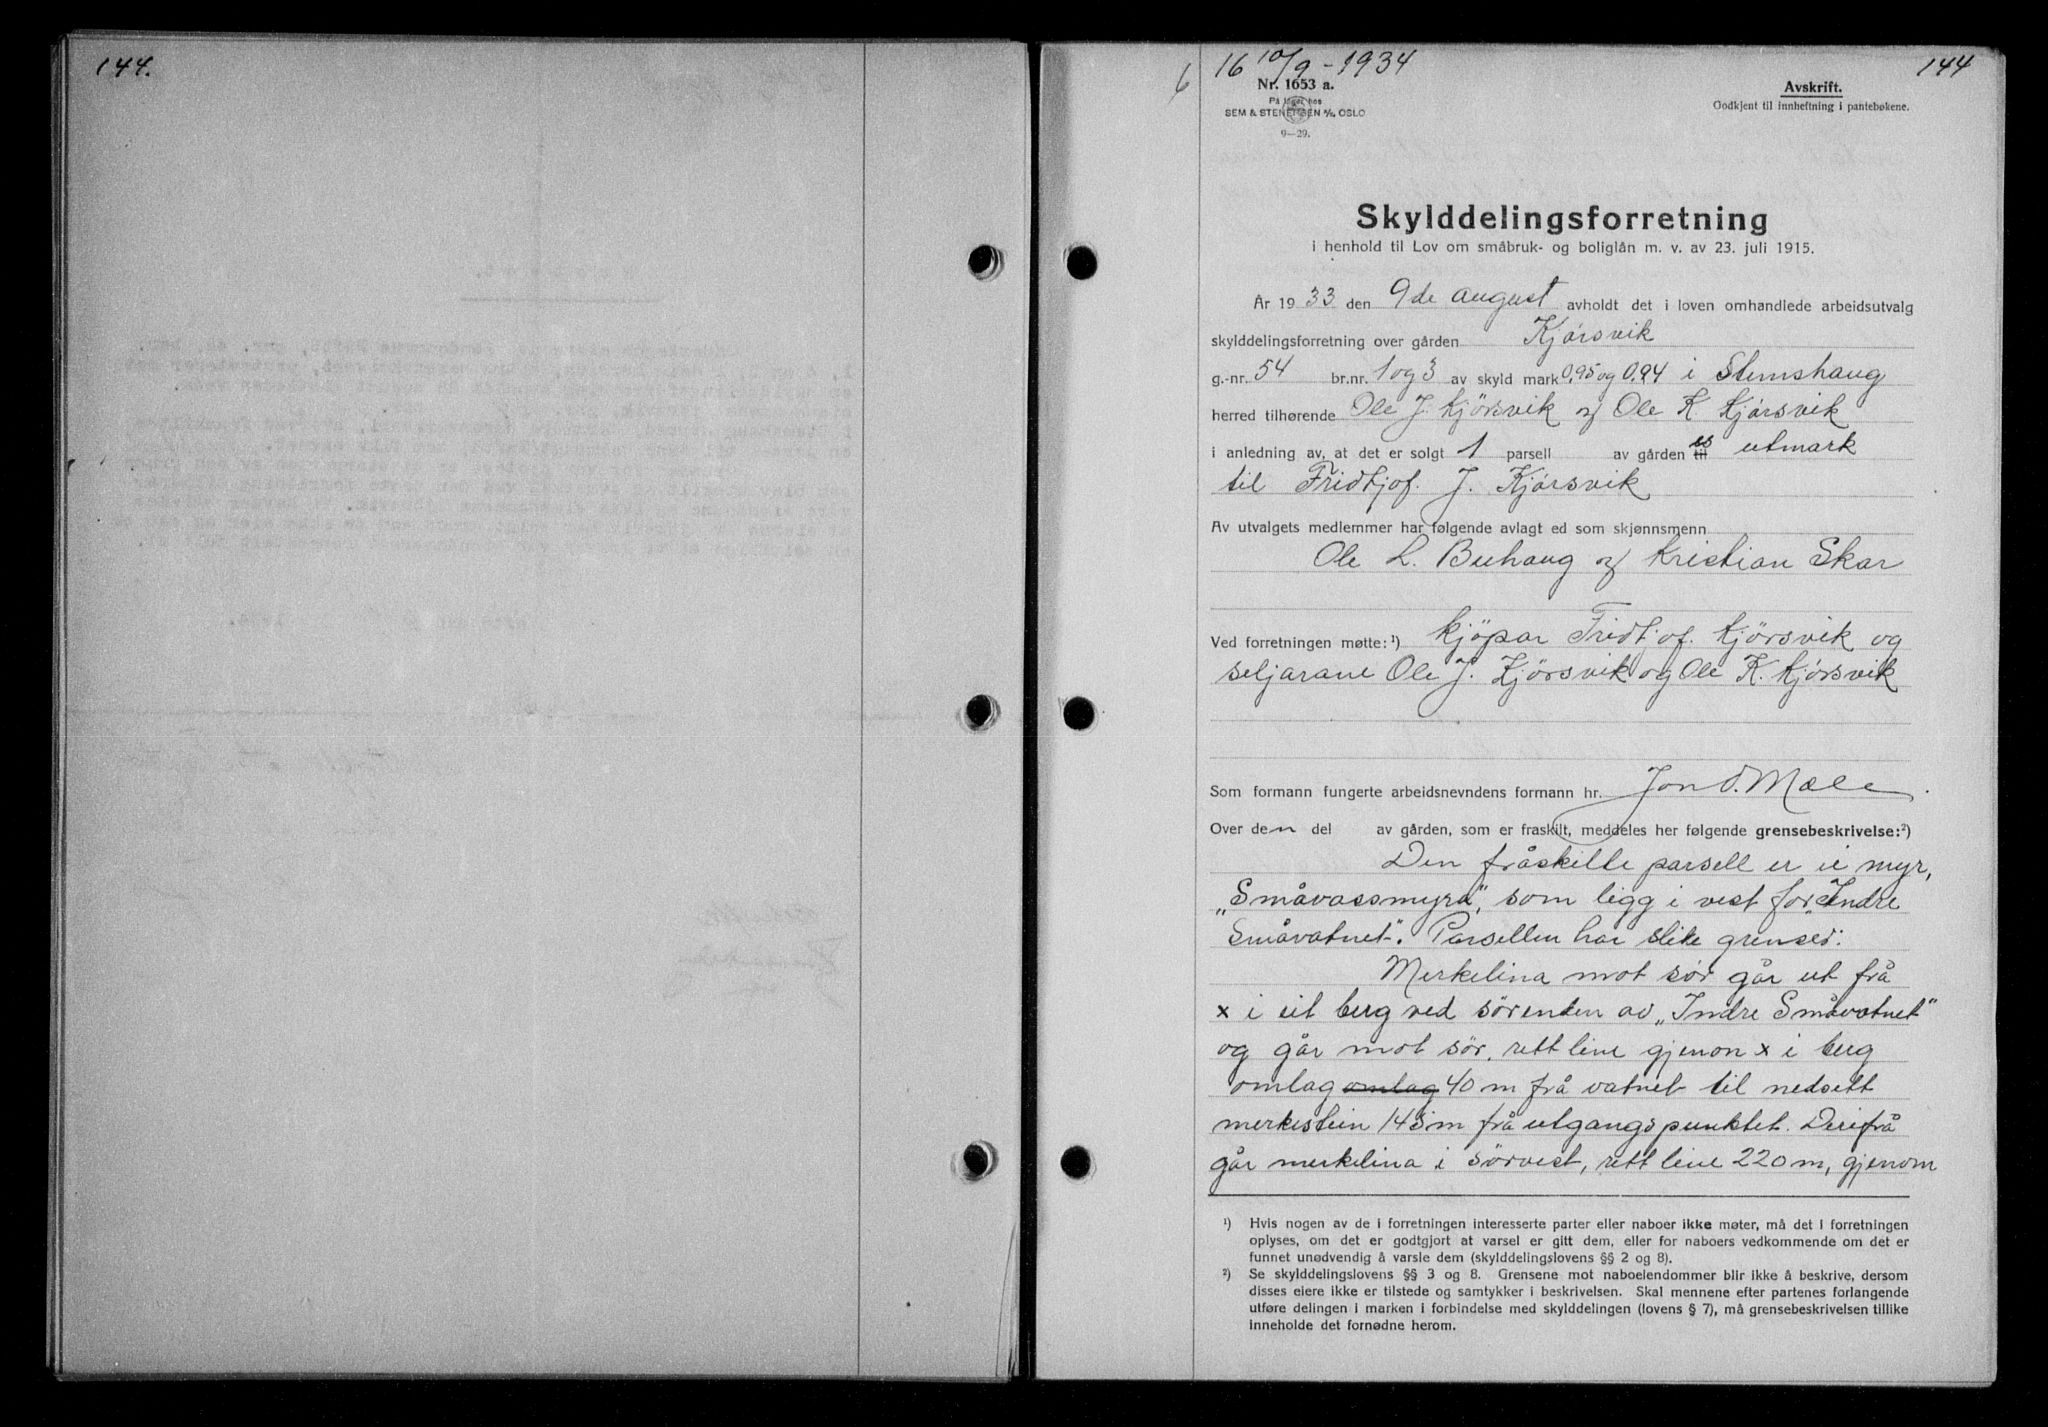 144.
16 10/9 - 1934
144
6
Nr. 1653 a.
På lager hos
SEM & STENERSEN A/S OSLO
9—29.
Avskrift.
Godkjent til innheftning i pantebøkene.
Skylddelingsforretning
i henhold til Lov om småbruk- og boliglån m. v. av 23. juli 1915.
År 1933 den 9de august avholdt det i loven omhandlede arbeidsutvalg
skylddelingsforretning over gården Kjørsvik
g.-nr. 54 br.nr. 1 og 3 av skyld mark 0,95 og 0,94 i Stemshaug
herred tilhørende Ole J. Kjørsvik og Ole K. Kjørsvik
i anledning av, at det er solgt 1 parsell av gården es til utmark
til Fridtjof. J. Kjørsvik
Av utvalgets medlemmer har følgende avlagt ed som skjønnsmenn
Ole L. Buhaug og Kristian Skar
Ved forretningen møtte:¹) kjøpar Fridtjof. Kjørsvik og
seljarane Ole J. Kjørsvik og Ole K. Kjørsvik
Som formann fungerte arbeidsnevndens formann hr. Jon O. Mæle.
Over den del av gården, som er fraskilt, meddeles her følgende grensebeskrivelse:²)
Den fråskilte parsell er ei myr,
„Småvassmyra", som ligg i vest for „Indre
Småvatnet". Parsellen har slike grenser:
Merkelina mot sør går ut frå
x i eit berg ved sørenden av „Indre Småvatnet"
og går mot sør, rett line gjenon x i berg
omlag omlag 40 m frå vatnet til nedsett
merkestein 145 m frå utgangspunktet. Derifrå
går merkelina i sørvest, rett line 220 m, gjenom
¹) Hvis nogen av de i forretningen interesserte parter eller naboer ikke møter, må det i forretningen
oplyses, om det er godtgjort at varsel er gitt dem, eller for naboers vedkommende om det er
funnet unødvendig å varsle dem (skylddelingslovens §§ 2 og 8).
²) Se skylddelingslovens §§ 3 og 8. Grensene mot naboeiendommer blir ikke å beskrive, dersom
disses eiere ikke er tilstede og samtykker i beskrivelsen. Skal mennene efter partenes forlangende
utføre delingen i marken i forbindelse med skylddelingen (lovens § 7), må grensebeskrivelsen tillike
inneholde det fornødne herom.